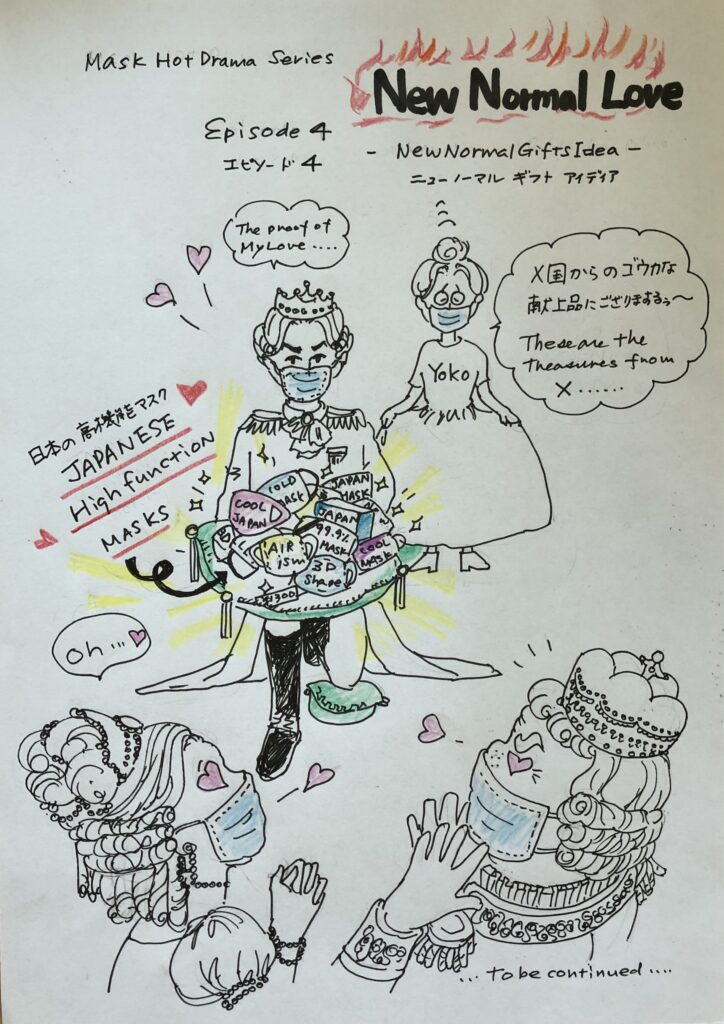 Mask Hot Drama Series
New Normal Love
Episode 4
エピソード 4
- New Normal Gifts Idea -
ニューノーマル ギフト アイディア
The proof of
My Love ....
X国からのゴウカな
献上品にござりまするぅ〜
These are the
treasures from
X ......
Yoko
日本の高機能マスク
JAPANESE
High function
MASKS
COLD
MASK
JAPAN
MASK
COOL
JAPAN
JAPAN
99.9%
MASK
AIR
ism
COOL
MASK
3D
Shape
¥1300
oh ...
... to be continued ....